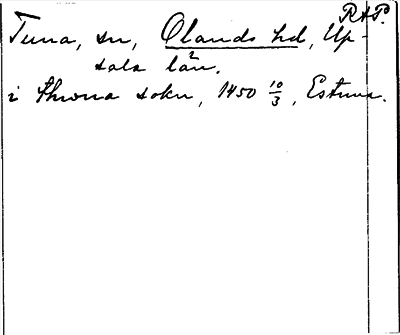 RAP.
Tuna, sn, Olands hd, Up-
sala län.
i thwna sokn, 1450 10/3, Estuna.